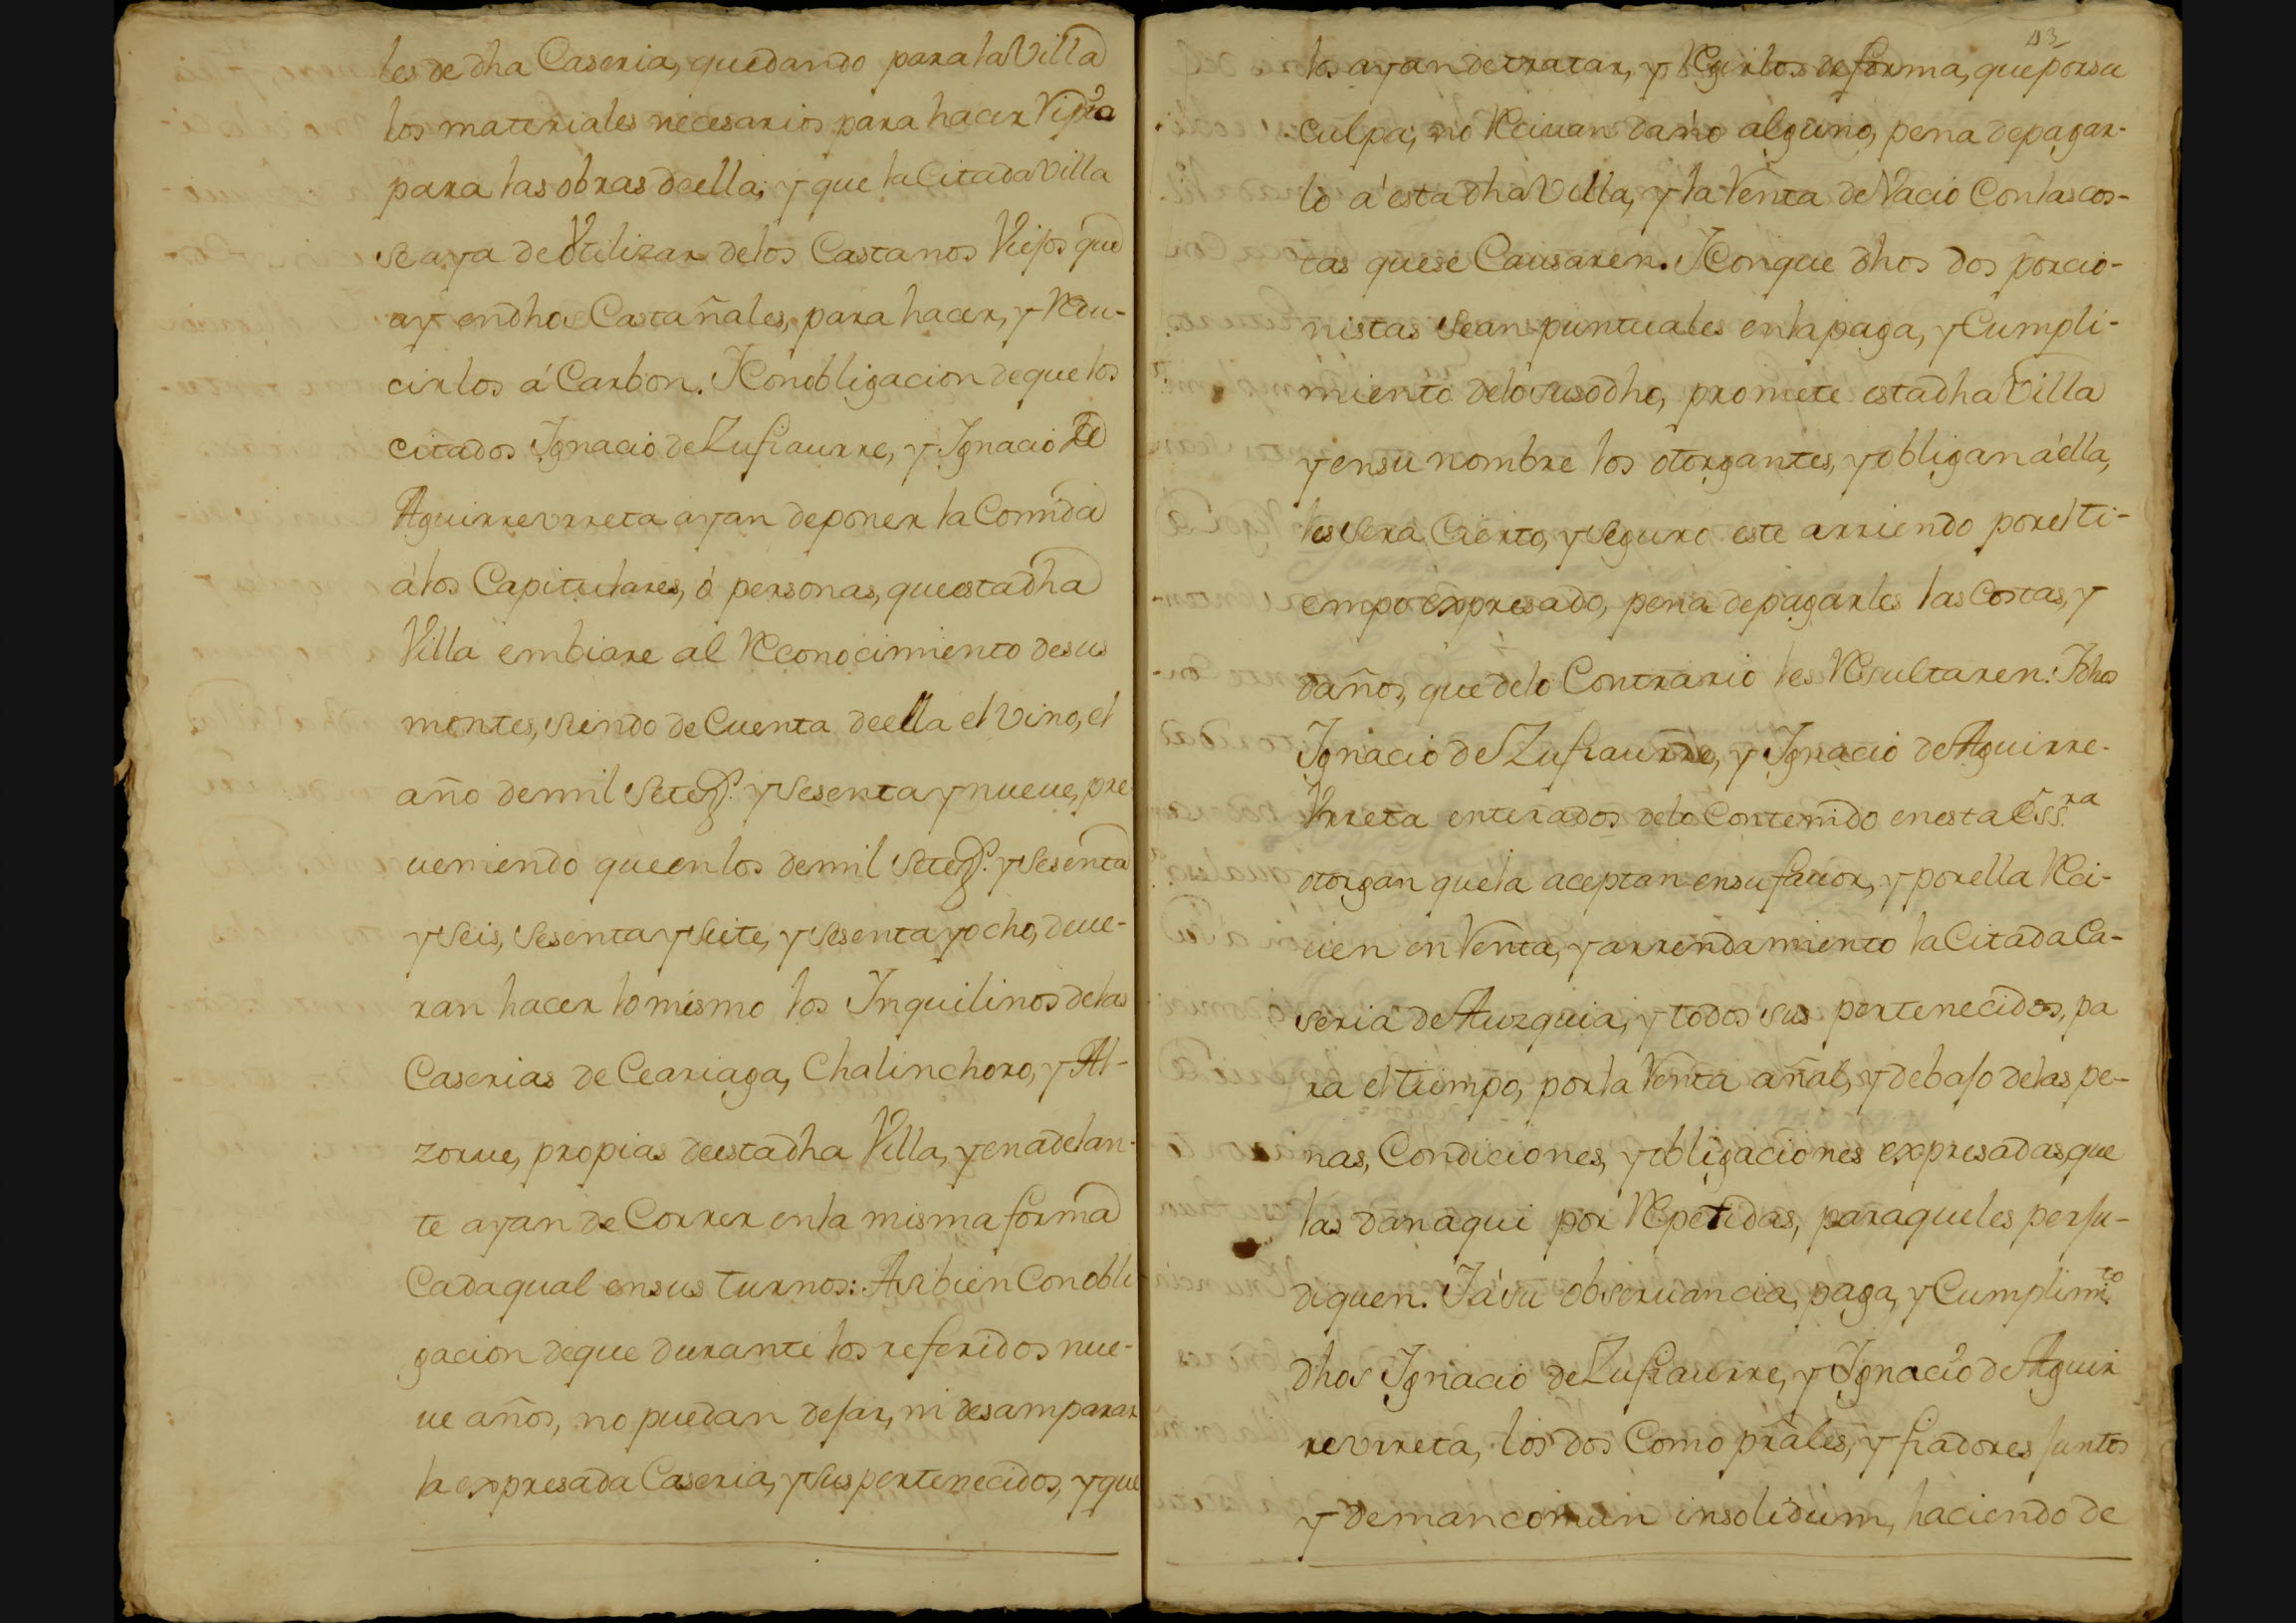 les de dha Caseria, quedando para la Villa
los materiales necesarios para hacer
para las obras de ella; y que la Citada Villa
se aya de Utilizar de los Castanos Viejos que
ay en dhos Castañales, para hacer, y Redu-
cirlos á Carbon. Y Con obligacion de que los
citados Ignacio de Zufiaurre, y Ignacio de
Aguirreurreta ayan de poner la Comida
á los Capitulares, ó personas, que esta dha
Villa embiare al Reconocimiento de sus
montes, siendo de Cuenta de ella el vino, el
año de mil setezs. y sesenta y nueue, pre-
ueniendo que en los de mil setezs. y sesenta
y seis, sesenta y siete, y sesenta y ocho, deue-
ran hacer lo mismo los Inquilinos de las
Caserias de Ceariaga, Chalinchoro, y Al-
zorue, propias de esta dha Villa, y en adelan-
te ayan de Correr en la misma forma
Cada qual en sus turnos: Asibien Con obli
gacion de que durante los referidos nue-
ue años, no puedan dejar, ni desamparar
la expresada Caseria, y sus pertenecidos, y que
13
los ayan de tratar, y Regirlos de forma, que por su
culpa, no Reciuan daño alguno, pena de pagar-
lo á esta dha Villa, y la Renta de Vacio Con las cos-
tas que se Causaren. Y Con que dhos dos porcio-
nistas sean puntuales en la paga, y Cumpli-
miento de lo susodho, promete esta dha Villa
y en su nombre los otorgantes, y obligan á ella,
les será Cierto, y seguro este arriendo por el ti-
empo expresado, pena de pagarles las Costas, y
daños, que de lo Contrario les Resultaren: Y dhos
Ignacio de Zufiaurre, y Ignacio de Aguirre-
Vrreta enterados de lo Contenido en esta Essra
otorgan que la aceptan en su fauor, y por ella Reci-
uen en Renta, y arrendamiento la Citada Ca-
seria de Auzquia, y todos sus pertenecidos, pa
ra el tiempo, por la Renta añal, y debajo de las pe-
nas, Condiciones, y obligaciones expresadas, que
las dan aqui por Repetidas, para que les perju-
diquen. Y á su obseruancia, paga, y Cumplimto
dhos Ignacio de Zufiaurre, y Ignacio de Aguir
reurreta, los dos Como prales, y fiadores juntos
y de mancomun insolidum, haciendo de